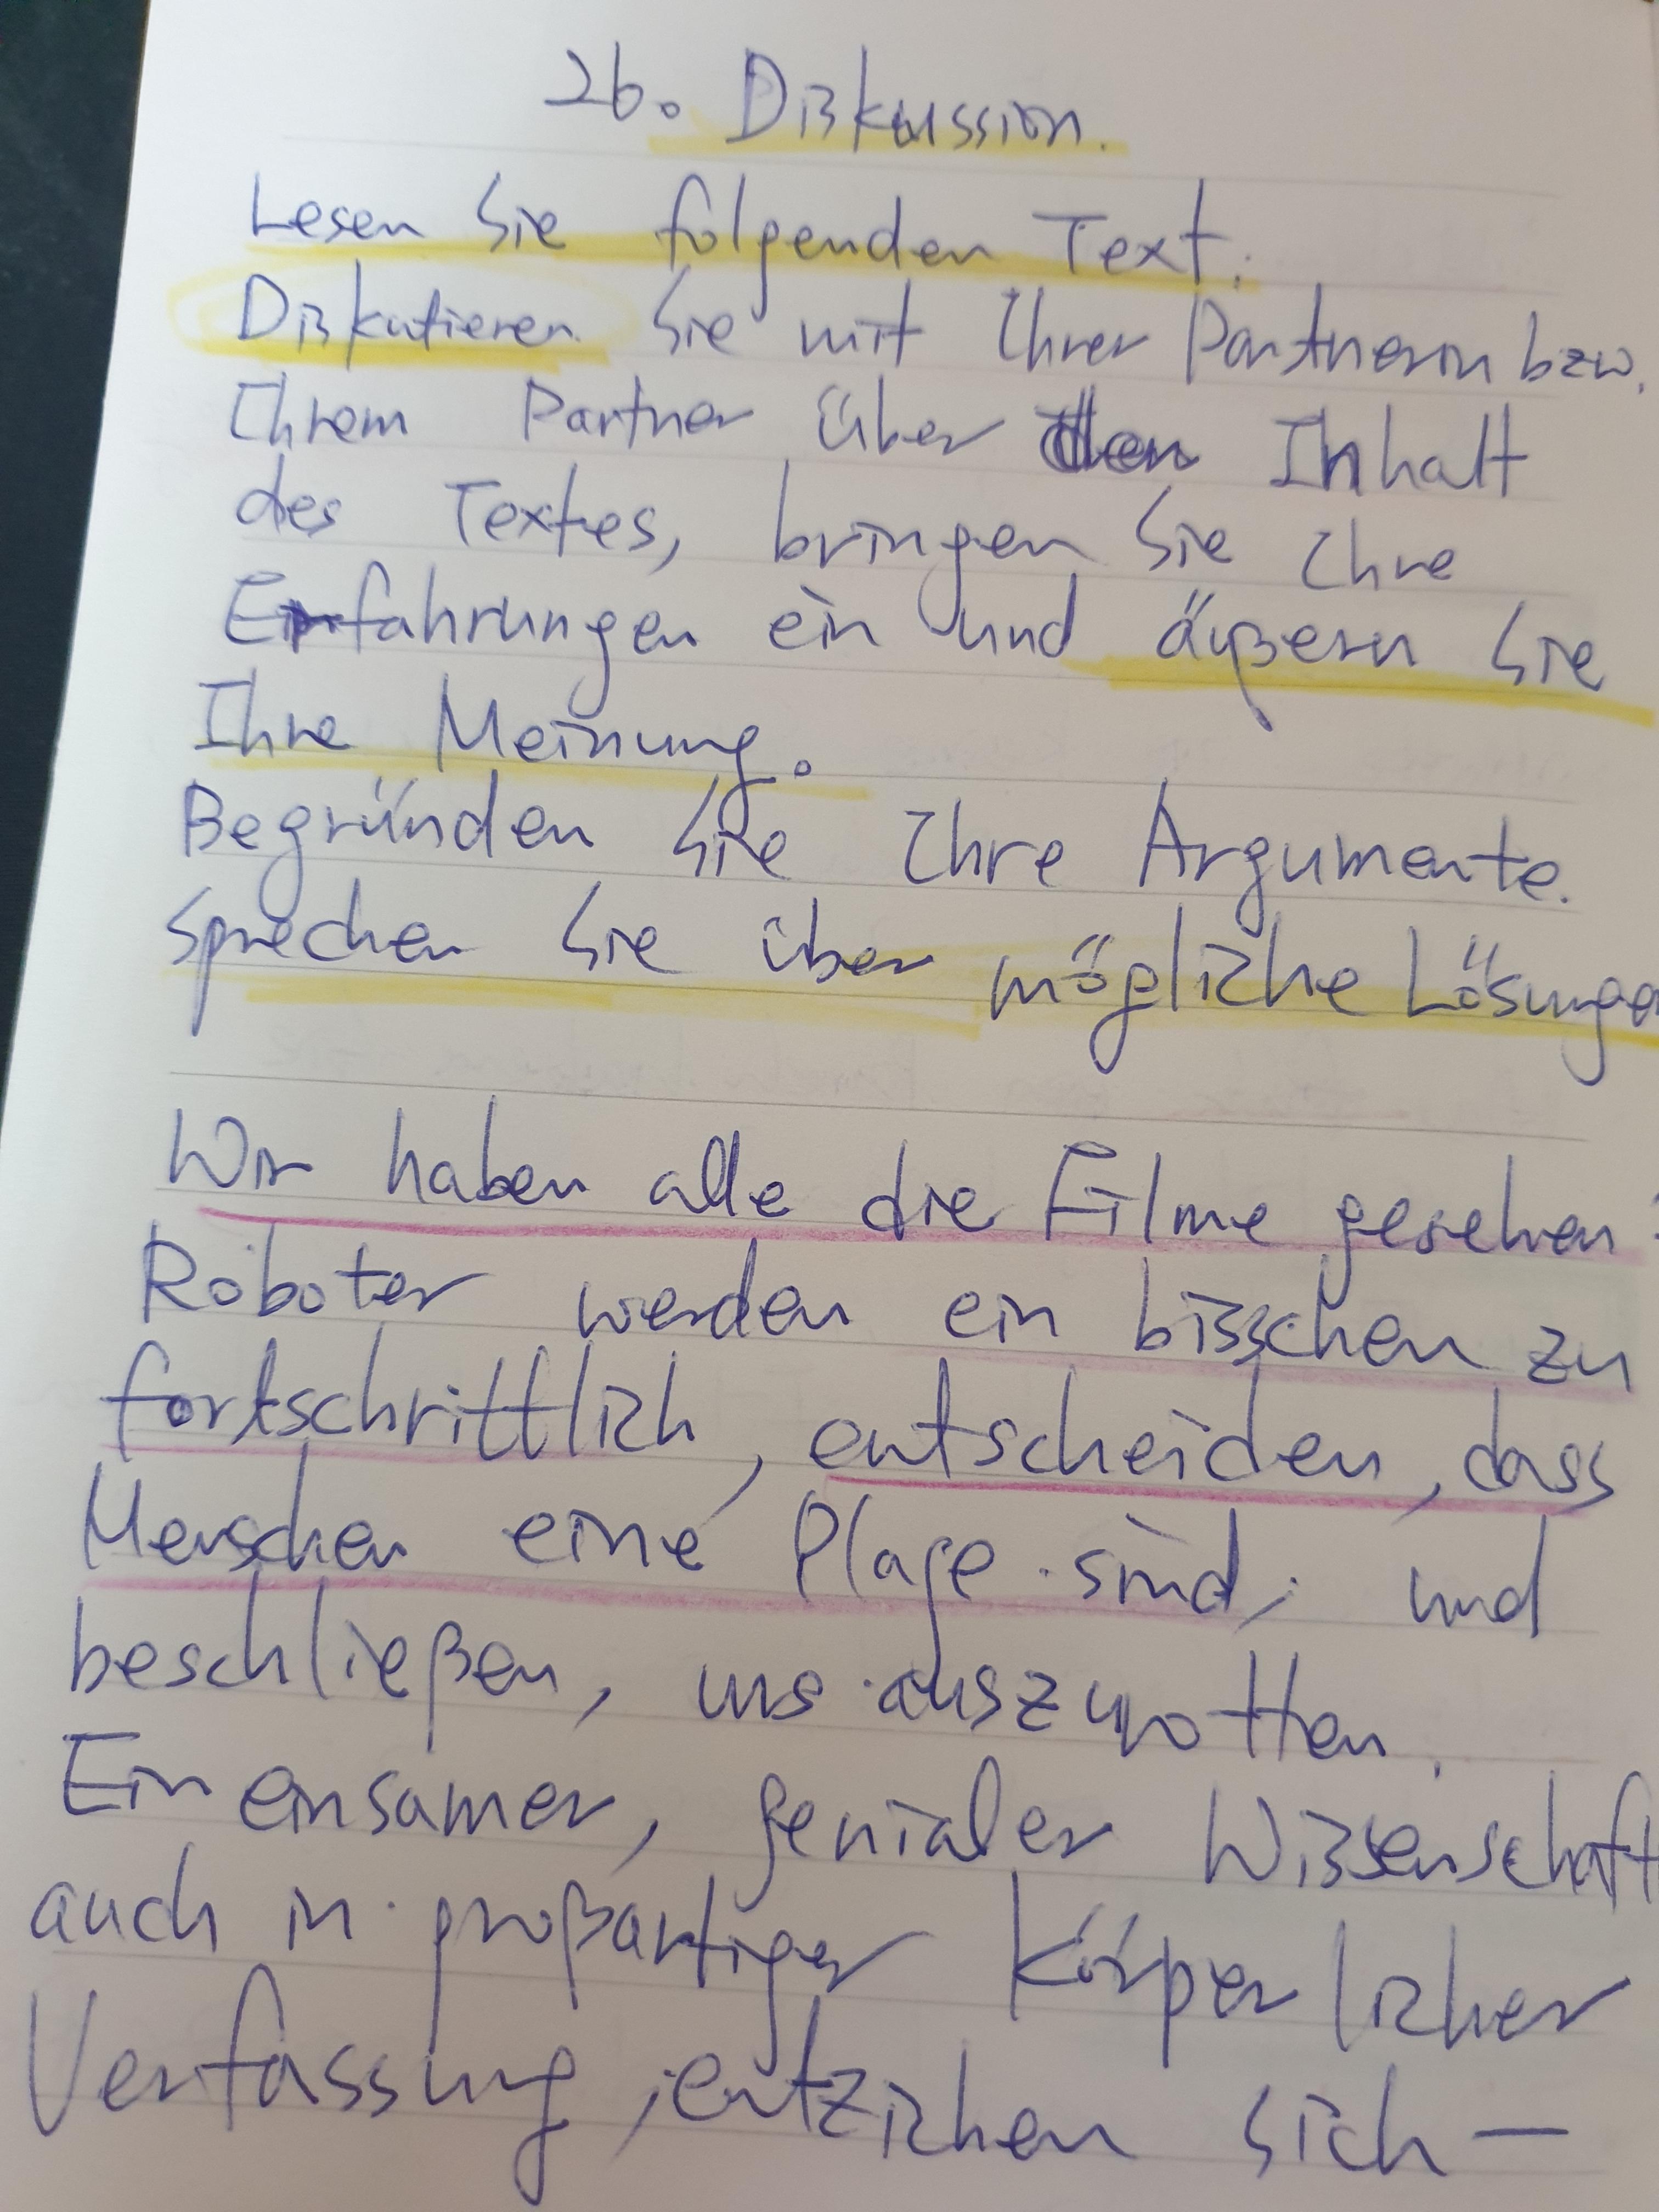 26. Diskussion.
Lesen Sie folgenden Text.
Diskutieren Sie mit Ihrer Partnerin bzw.
Ihrem Partner über den Inhalt
des Textes, bringen Sie Ihre
Erfahrungen ein und äußern Sie
Ihre Meinung.
Begründen Sie Ihre Argumente.
Sprechen Sie über mögliche Lösungen
Wir haben alle die Filme gesehen:
Roboter werden ein bisschen zu
fortschrittlich, entscheiden, dass
Menschen eine Plage sind, und
beschließen, uns auszurotten.
Ein einsamer, genialer Wissenschaft
auch in großartiger körperlicher
Verfassung, entzichen sich –